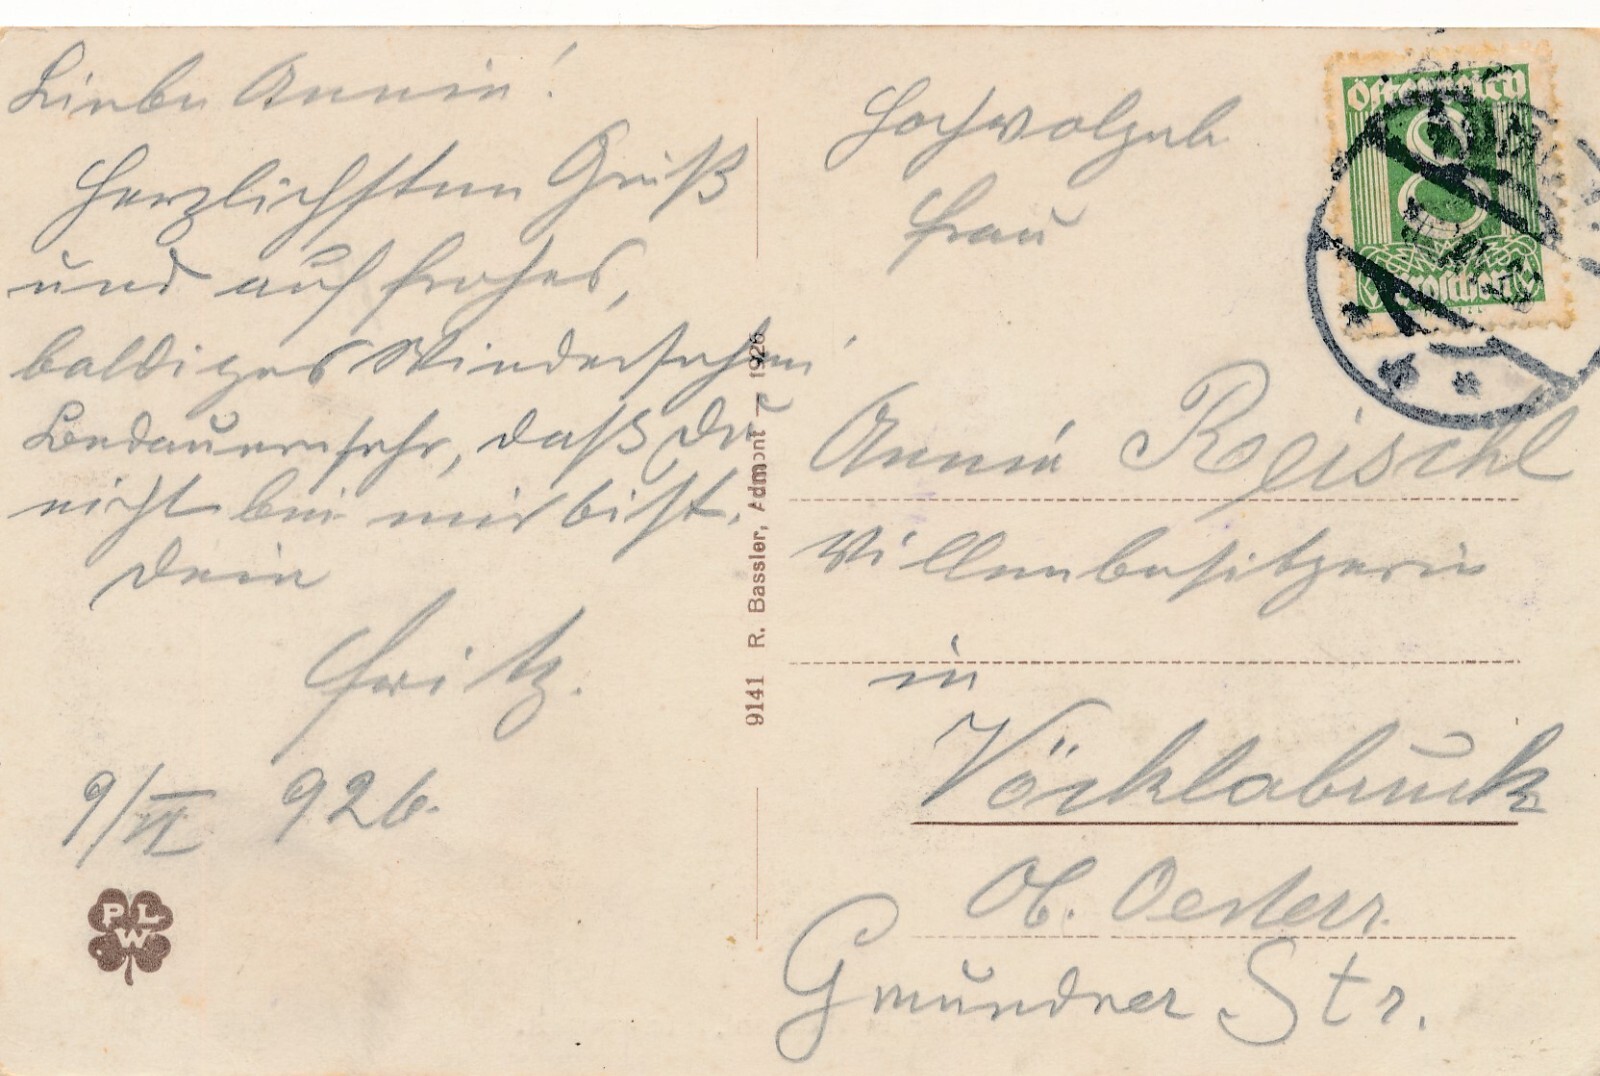 Liebe Annie!
Herzlichsten Gruß
und auf frohes,
baldiges Wiedersehen!
Bedauern sehr, daß Du
nicht bei mir bist.
Dein
Fritz.
9/VI 926.
PLW
9141 R. Bassler, Admont – 1926
Österreich
8
8
Groschen
Hochwolgeb
Frau
Annie Reischl
Villenbesitzerin
in
Vöcklabruck
Ob. Oesterr.
Gmundner Str.